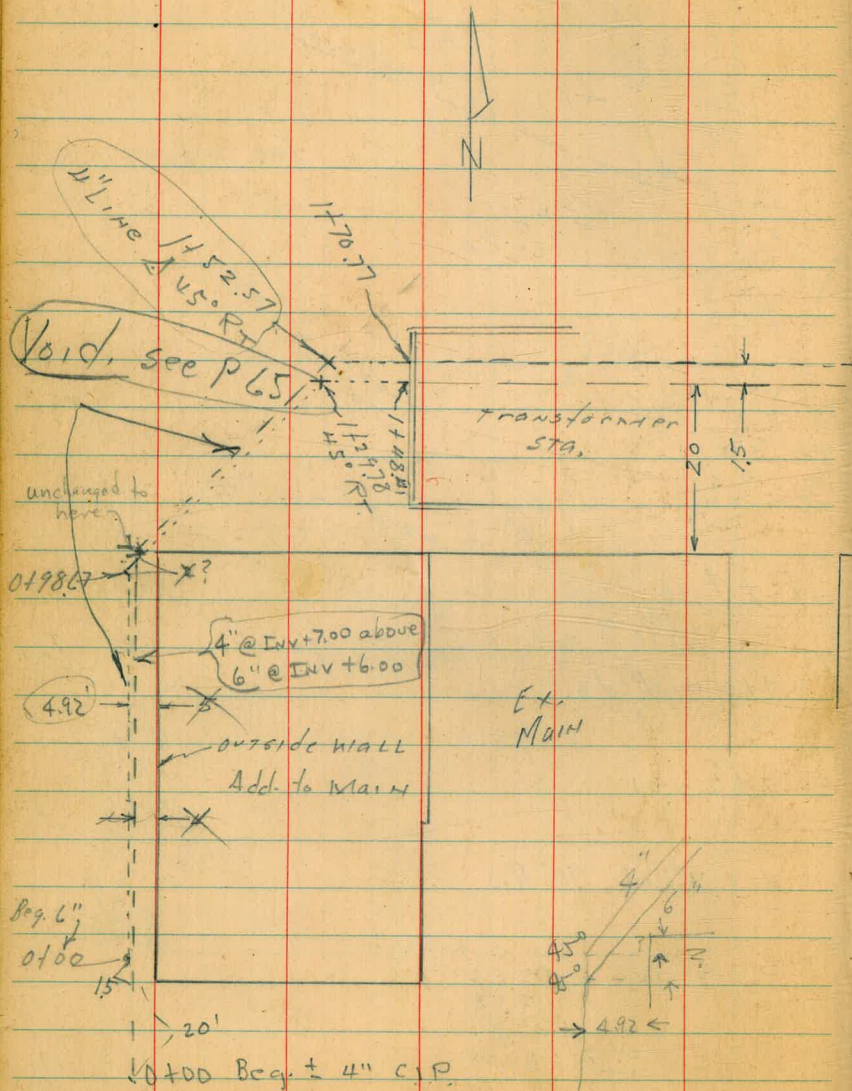 N
4" Line 1+52.57
Δ 45° RT
1+70.77
Void. see P 65
1+29.78
45° RT.
1+48.
Transformer
STA.
20
1.5
unchanged to
here
0+98.67
?
4" @ INV +7.00 above
6" @ INV +6.00
4.92'
5
Ex.
Main
outside wall
Add. to Main
4
Beg. 6"
0+00
1.5
20'
0+00 Beg. ± 4" C.I.P.
4"
6"
45°
45°
?
?
4.92